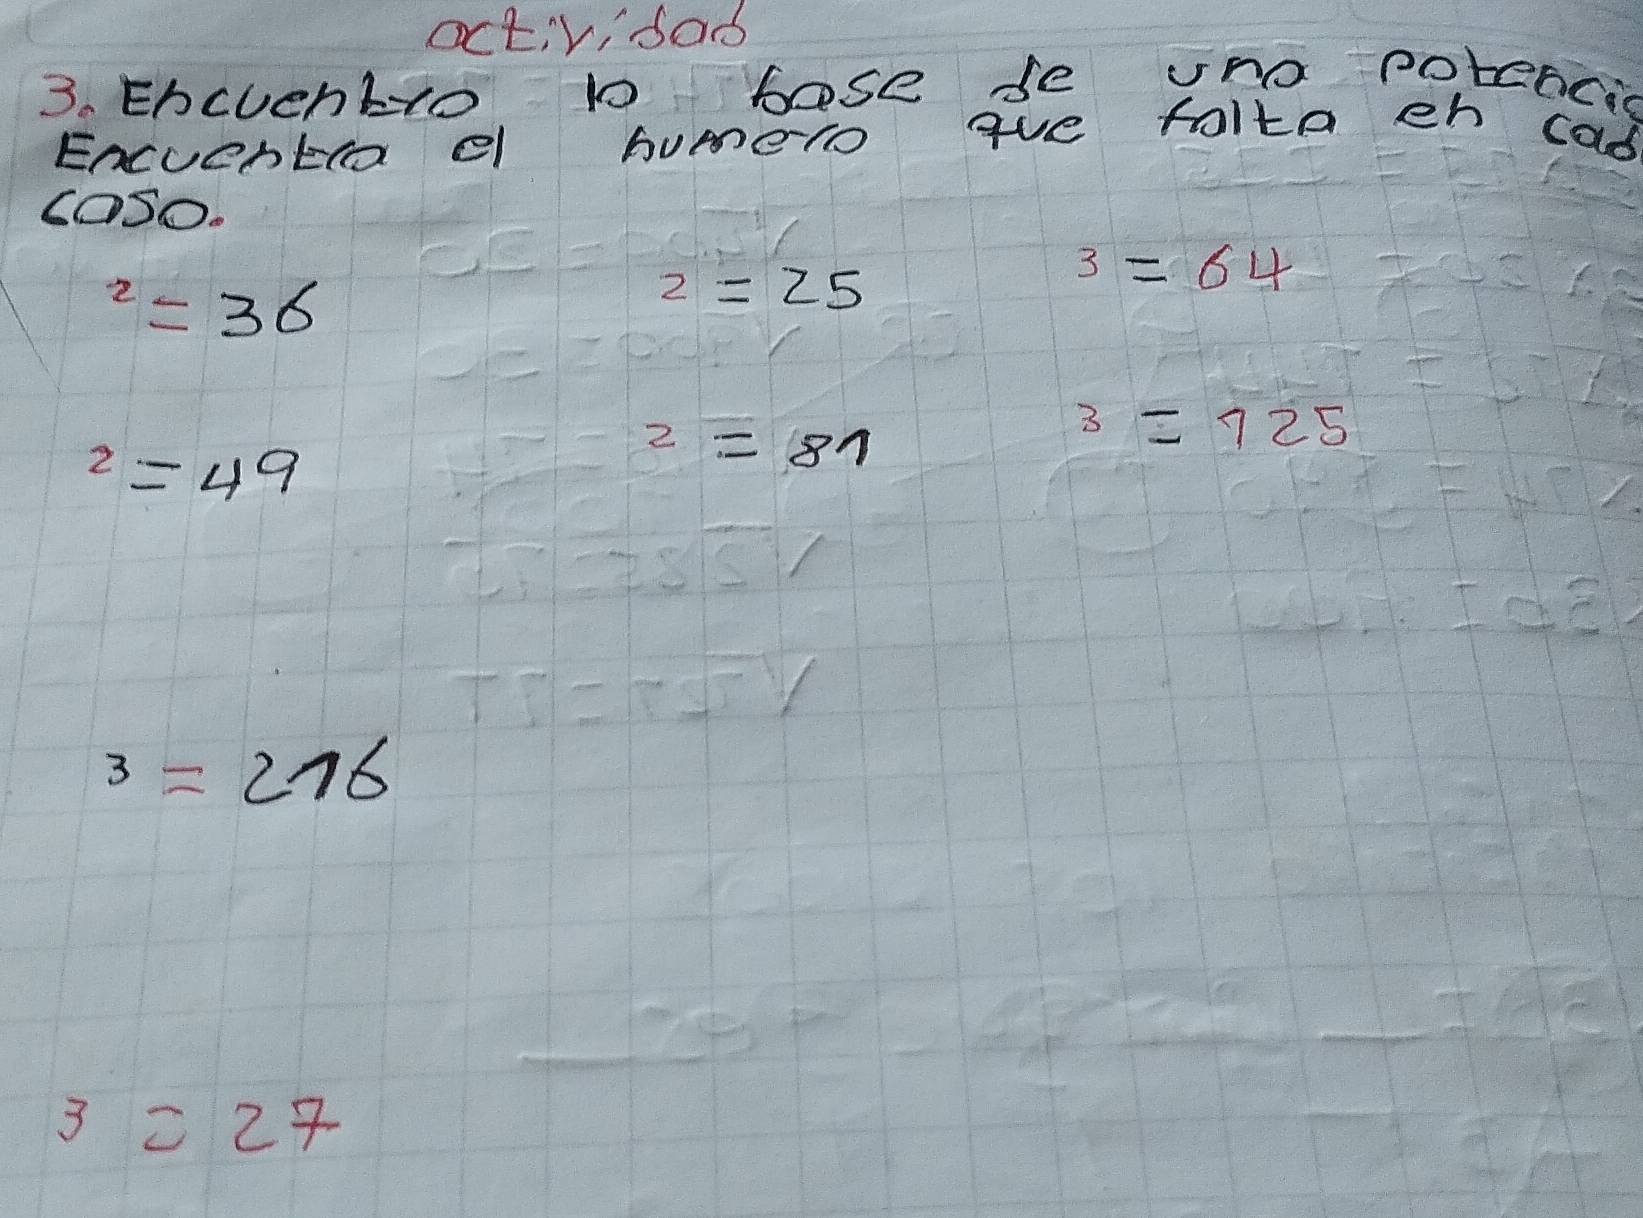 actividad
3. Encuentro la base de una potencia
Encuentra el numero que falta en cad
caso.
² = 36 ² = 25 ³ = 64
² = 49 ² = 81 ³ = 125
³ = 216
³ = 27